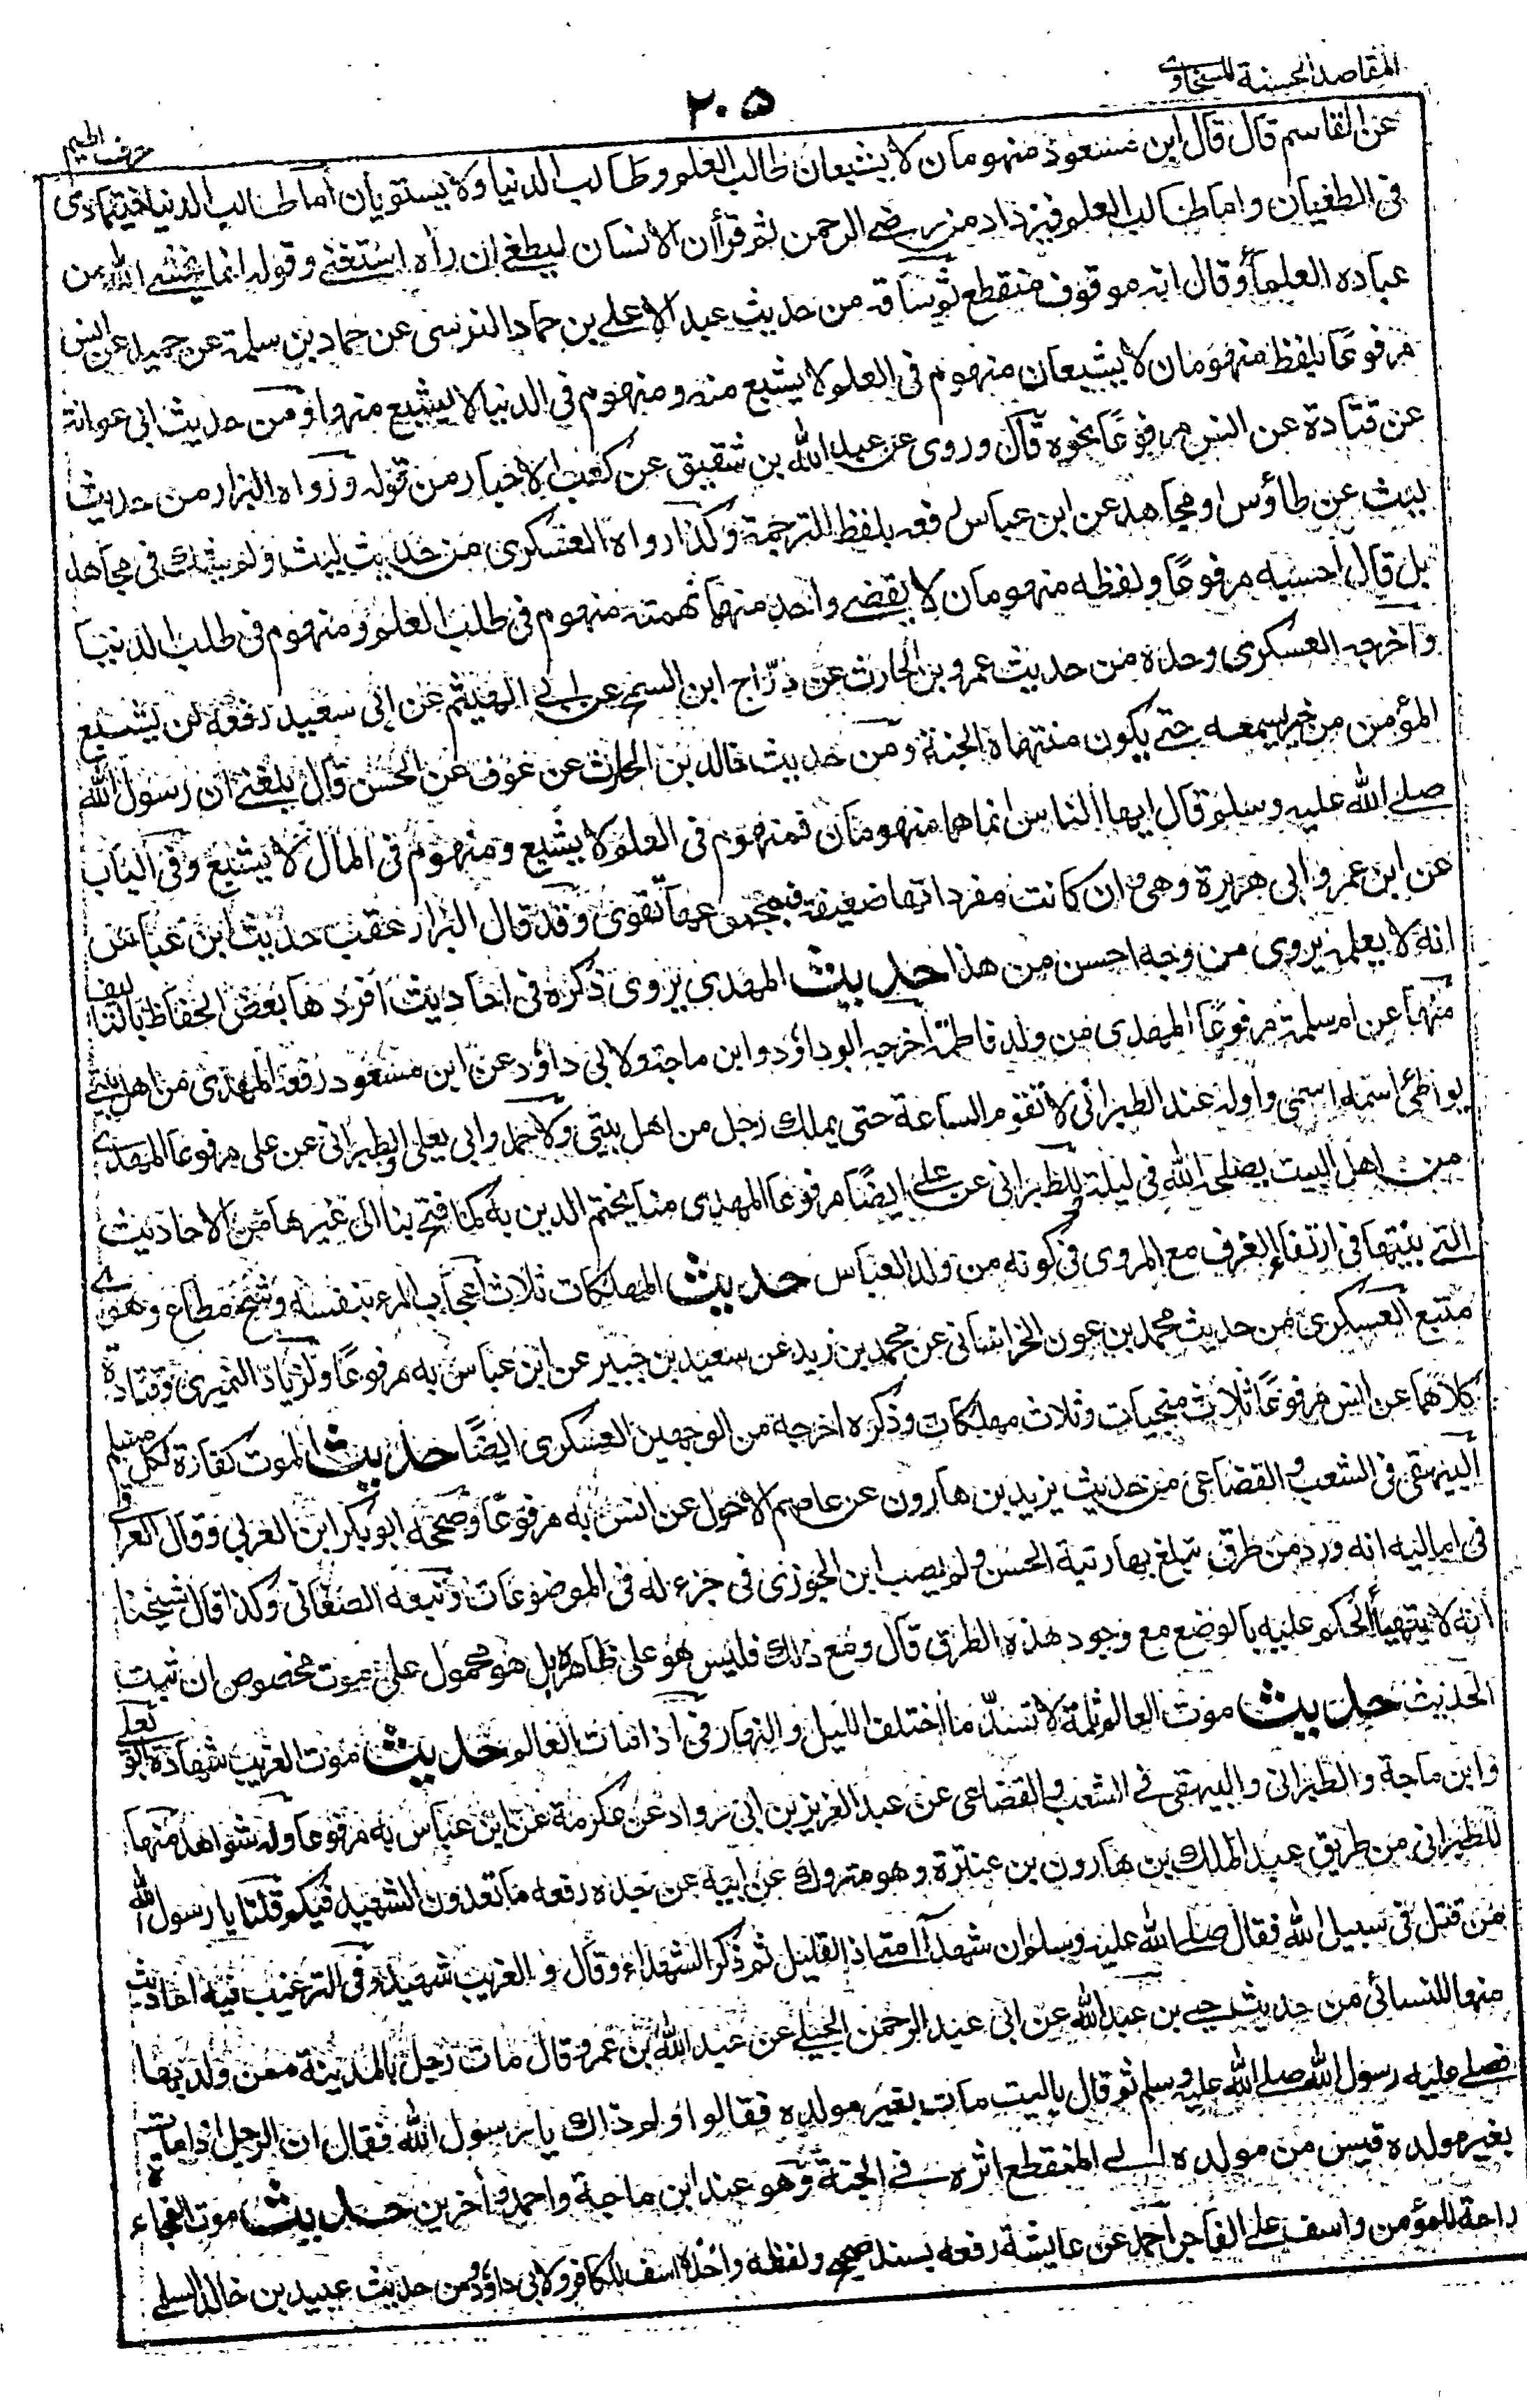 المقاصد الحسنة للسخاوي
٢٠٥
حرف الميم
عن القاسم قال قال ابن مسعود منهومان لا يشبعان طالب العلم وطالب الدنيا ولا يستويان أما طالب الدنيا فيتمادى
فى الطغيان واما طالب العلم فيزداد من رضى الرحمن ثم قرأ ان الانسان ليطغى ان رأه استغنى وقوله انما يخشى الله من
عباده العلمأ وقال انه موقوف منقطع ثم ساقه من حديث عبد الاعلى بن حماد النرسى عن حماد بن سلمة عن حميد عن انس
مرفوعًا بلفظ منهومان لا يشبعان منهوم فى العلم لا يشبع منه ومنهوم فى الدنيا لا يشبع منها ومن حديث ابى عوانة
عن قتادة عن انس مرفوعًا نحوه قال وروى عن عبد الله بن شقيق عن كعب الاحبار من قوله ورواه البزار من حديث
ليث عن طاؤس او مجاهد عن ابن عباس رفعه بلفظ الترجمة وكذا رواه العسكرى من حديث ليث ولم يشك فى مجاهد
بل قال احسبه مرفوعًا ولفظه منهومان لا يقضى واحد منهما نهمته منهوم فى طلب العلم ومنهوم فى طلب الدنيا
واخرجه العسكرى وحده من حديث عمرو بن الحارث عن درّاج ابن السمح عن ابى الهيثم عن ابى سعيد رفعه لن يشبع
المؤمن من خير يسمعه حتى يكون منتهاه الجنة ومن حديث خالد بن الحارث عن عوف عن الحسن قال بلغنى ان رسول الله
صلى الله عليه وسلم قال ايها الناس انما هما منهومان فمنهوم فى العلم لا يشبع ومنهوم فى المال لا يشبع وفى الباب
عن ابن عمر وابى هريرة وهى وان كانت مفرداتها ضعيفة فبمجموعها تقوى وقد قال البزار عقب حديث ابن عباس
انه لا يعلمه يروى من وجه احسن من هذا حديث المهدى يروى ذكره فى احاديث أفردها بعض الحفاظ بالتاليف
منها عن ام سلمة مرفوعًا المهدى من ولد فاطمة أخرجه ابو داؤد وابن ماجة ولابى داؤد عن ابن مسعود رفعه المهدى من اهل بيتى
يواطئ اسمه اسمى واوله عند الطبرانى لا تقوم الساعة حتى يملك رجل من اهل بيتى ولاحمد وابى يعلى والطبرانى عن على مرفوعا المهدى
من اهل البيت يصلحه الله فى ليلة وللطبرانى عن على ايضًا مرفوعا المهدى منا يختم الدين به كما فتح بنا الى غيرها من الاحاديث
التى بينتها فى ارتقاء الغرف مع المروى فى كونه من ولد العباس حديث المهلكات ثلاث اعجاب المرء بنفسه وشح مطاع وهوى
متبع العسكرى من حديث محمد بن عون الخراسانى عن محمد بن زيد عن سعيد بن جبير عن ابن عباس به مرفوعًا ولزياد النميرى وقتادة
كلاهما عن انس مرفوعًا ثلاث منجيات وثلاث مهلكات وذكره اخرجه من الوجهين العسكرى ايضًا حديث الموت كفارة لكل مسلم
البيهقى فى الشعب والقضاعى من حديث يزيد بن هارون عن عاصم الاحول عن انس به مرفوعًا وصححه ابو بكر ابن العربى وقال العراقى
فى اماليه انه ورد من طرق يبلغ بها رتبة الحسن ولم يصب ابن الجوزى فى جزء له فى الموضوعات وتبعه الصغانى وكذا قال شيخنا
انه لا يتهيأ الحكم عليه بالوضع مع وجود هذه الطرق قال ومع ذلك فليس هو على ظاهره بل هو محمول على موت مخصوص ان ثبت
الحديث حديث موت العالم ثلمة لا تسدّ ما اختلف الليل والنهار فى اذا مات العالم حديث موت الغريب شهادة ابو يعلى
وابن ماجة والطبرانى والبيهقى فى الشعب والقضاعى عن عبد العزيز بن ابى رواد عن عكرمة عن ابن عباس به مرفوعا وله شواهد منها
للطبرانى من طريق عبد الملك بن هارون بن عنترة وهو متروك عن ابيه عن جده رفعه ما تعدون الشهيد فيكم قلنا يا رسول الله
من قتل فى سبيل الله فقال صلى الله عليه وسلم ان شهدآ امتى اذا لقليل ثم ذكر الشهداء وقال و الغريب شهيد وفى الترغيب فيه احاديث
منها للنسائى من حديث حيى بن عبد الله عن ابى عبد الرحمن الحبلى عن عبد الله بن عمرو قال مات رجل بالمدينة ممن ولد بها
فصلى عليه رسول الله صلى الله عليه وسلم ثم قال ياليت مات بغير مولده فقالوا ولم ذاك يا رسول الله فقال ان الرجل اذا مات
بغير مولده قيس من مولده الى المنقطع اثره فى الجنة وهو عند ابن ماجة واحمد وأخرين حديث موت الفجاءة
راحة للمؤمن واسف على الفاجر احمد عن عايشة رفعه بسند صحيح ولفظه واخذة اسف للكافر ولابى داؤد من حديث عبيد بن خالد السلمى